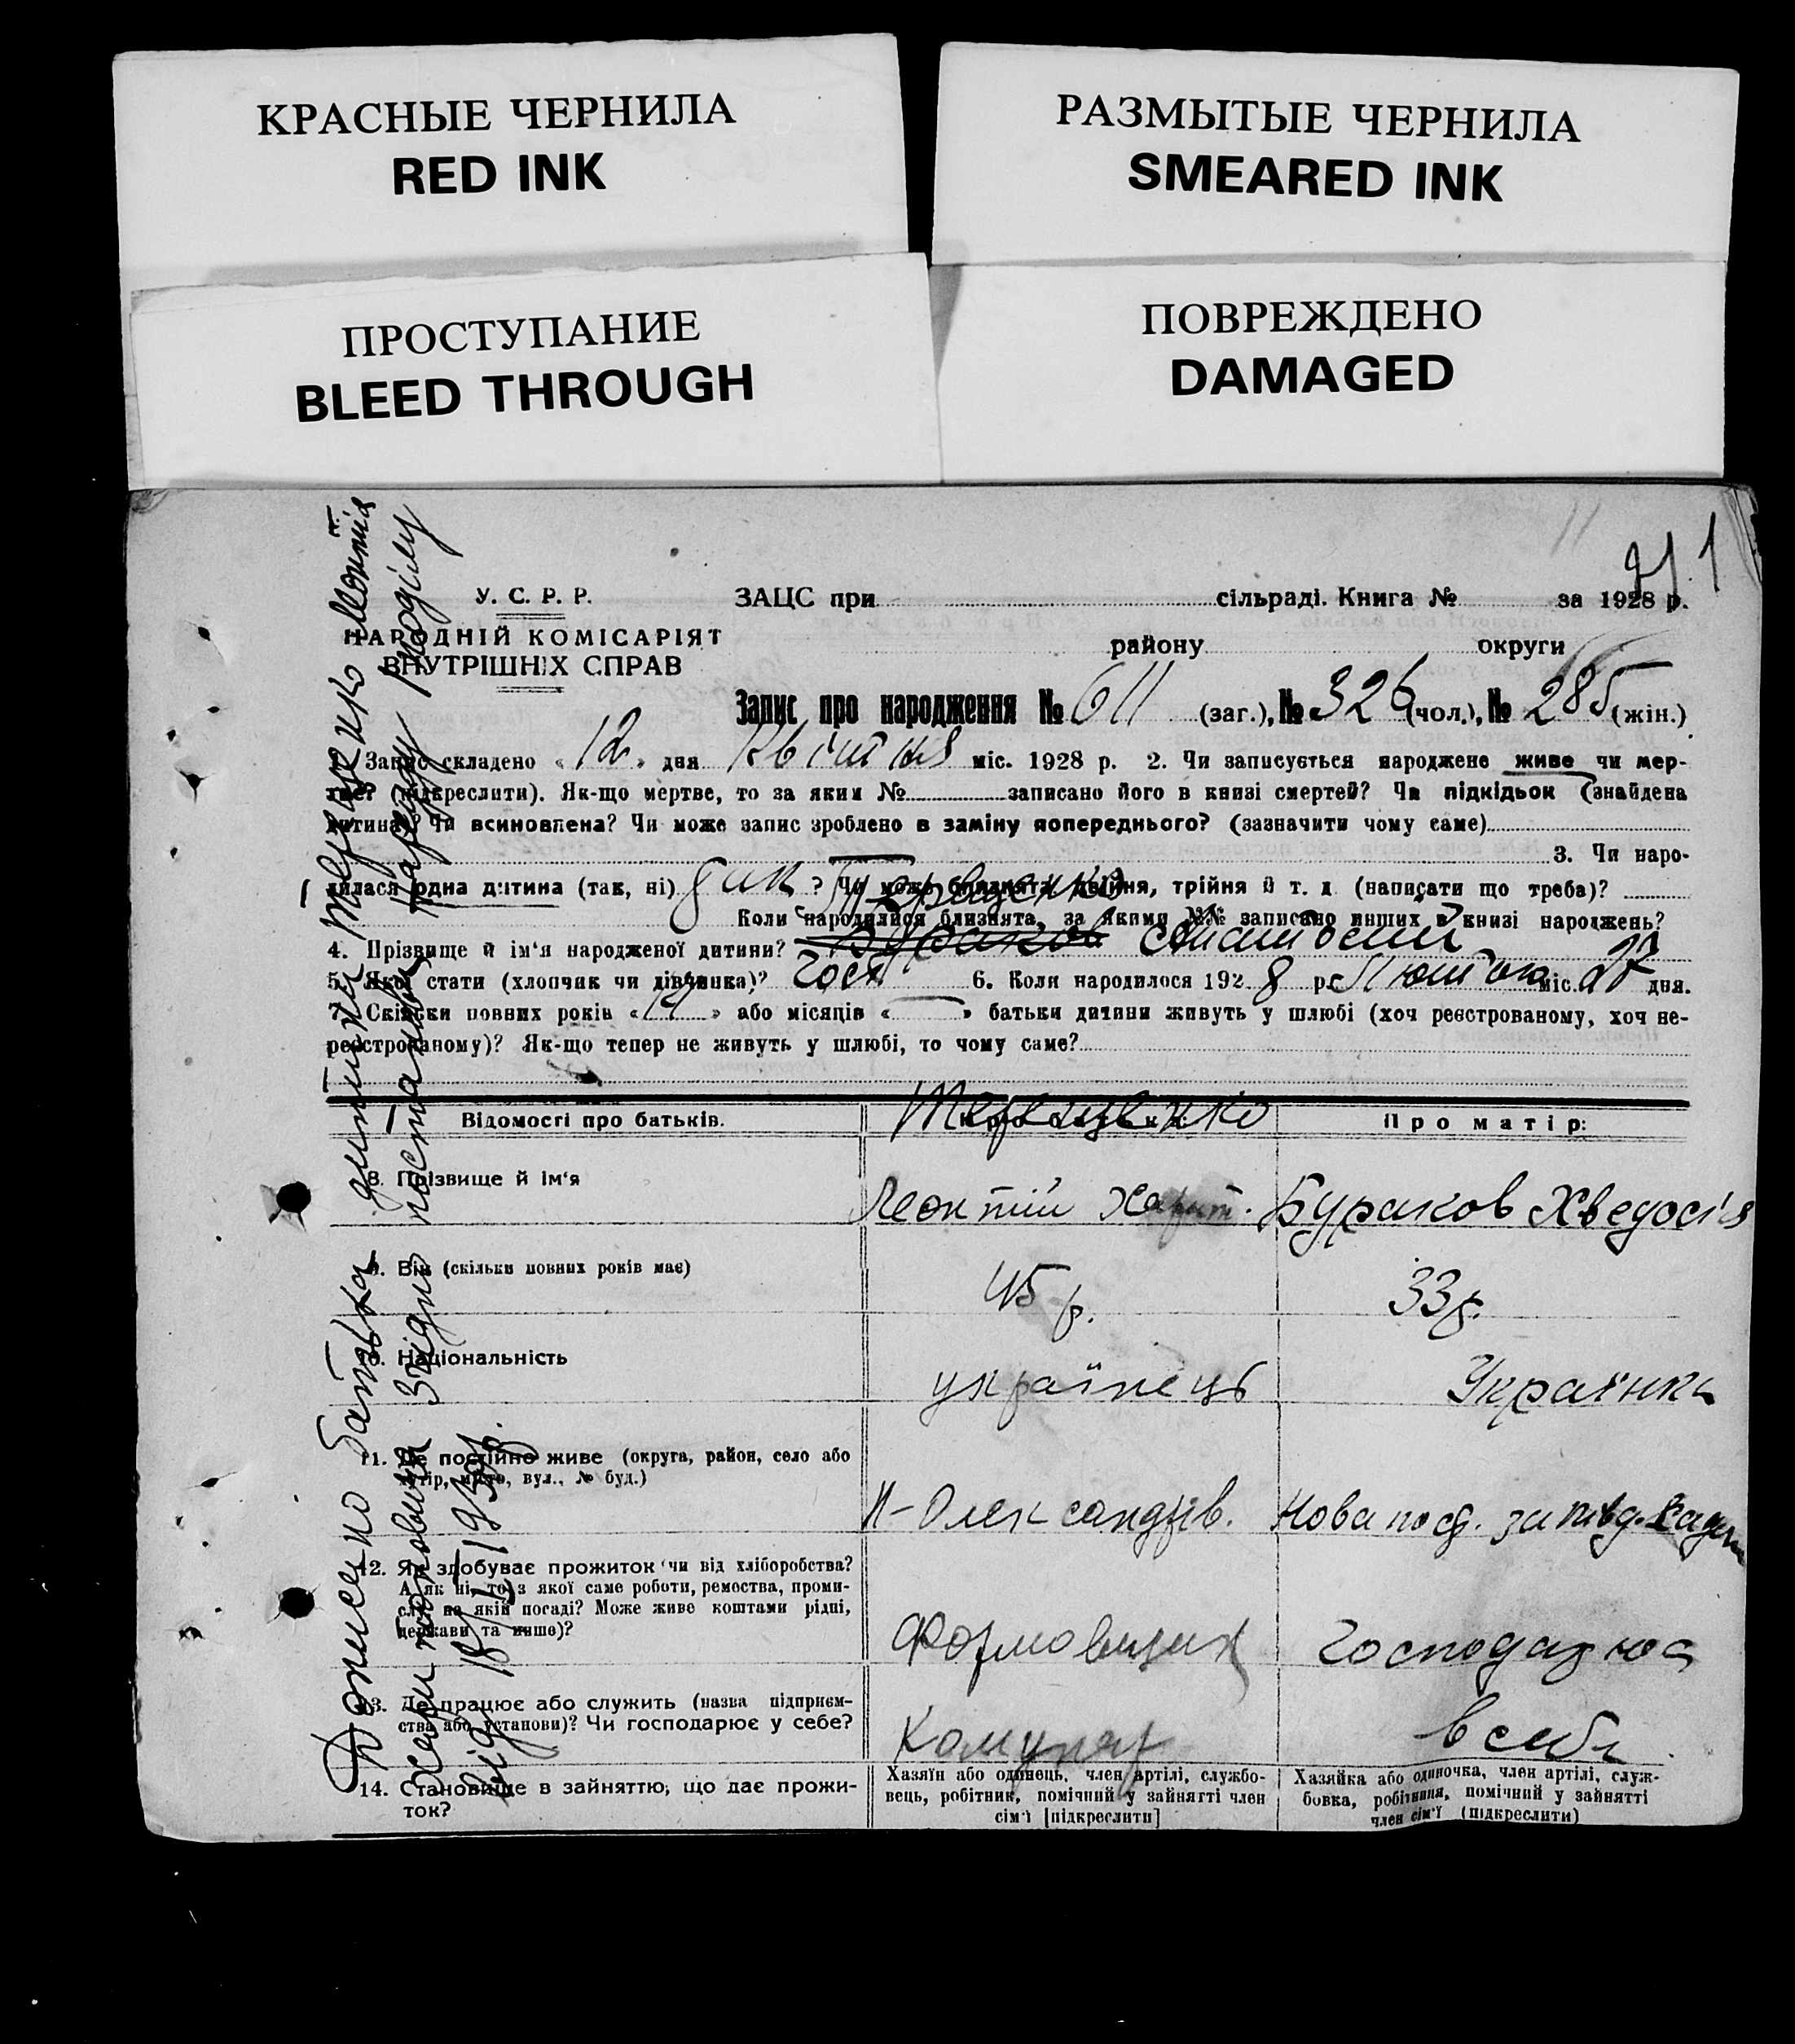 КРАСНЫЕ ЧЕРНИЛА
RED INK
РАЗМЫТЫЕ ЧЕРНИЛА
SMEARED INK
ПРОСТУПАНИЕ
BLEED THROUGH
ПОВРЕЖДЕНО
DAMAGED
У. С. Р. Р.
НАРОДНІЙ КОМІСАРІЯТ
ВНУТРІШНІХ СПРАВ
ЗАЦС при сільраді. Книга № за 1928 р.
району округи
Запис про народження № 611 (заг.), № 326 (чол.), № 285 (жін.)
1. Запис складено « 12 » дня Квітня міс. 1928 р. 2. Чи записується народжене живе чи мер-
тве? (підкреслити). Як-що мертве, то за яким № записано його в книзі смертей? Чи підкідьок (знайдена
дитина)? Чи всиновлена? Чи може запис зроблено в заміну попереднього? (зазначити чому саме)
3. Чи наро-
дилася одна дитина (так, ні) так ? Чи може близнята двійня, трійня й т. д (написати що треба)?
Коли народилися близнята, за якими №№ записано инших в книзі народжень?
Терещенко
4. Прізвище й ім'я народженої дитини? Бураков
5. Якої стати (хлопчик чи дівчинка)? 6. Коли народилося 1928 р. Лютого міс. 27 дня.
7. Скільки повних років « » або місяців « » батьки дитини живуть у шлюбі (хоч реєстрованому, хоч не-
реєстрованому)? Як-що тепер не живуть у шлюбі, то чому саме?
Відомості про батьків. Про матір:
Терещенко
8. Прізвище й ім'я Леонтій Харит. Бураков Хведосія
9. Вік (скільки повних років має) 45 р. 33 р.
10. Національність українець Українка
11. Де постійно живе (округа, район, село або
хутір, місто, вул., № буд.)
Н-Олександрів. Нова посд. за
12. Як здобуває прожиток чи від хліборобства?
А як ні, то з якої саме роботи, ремества, проми-
слу, на якій посаді? Може живе коштами рідні,
держави та инше)?
Формовщик Господарює
13. Де працює або служить (назва підприєм-
ства або установи)? Чи господарює у себе?
в себе
14. Становище в зайняттю, що дає прожи-
ток?
Хазяїн або одинець, член артілі, службо-
вець, робітник, помічний у зайнятті член
сім'ї [підкреслити]
Хазяйка або одиночка, член артілі, служ-
бовка, робітниця, помічний у зайнятті
член сім'ї (підкреслити)
Дописано батька дитини Терещенко Леонтія
Харитоновича Згідно постанови Нарсуду
від 18/ 1939р.